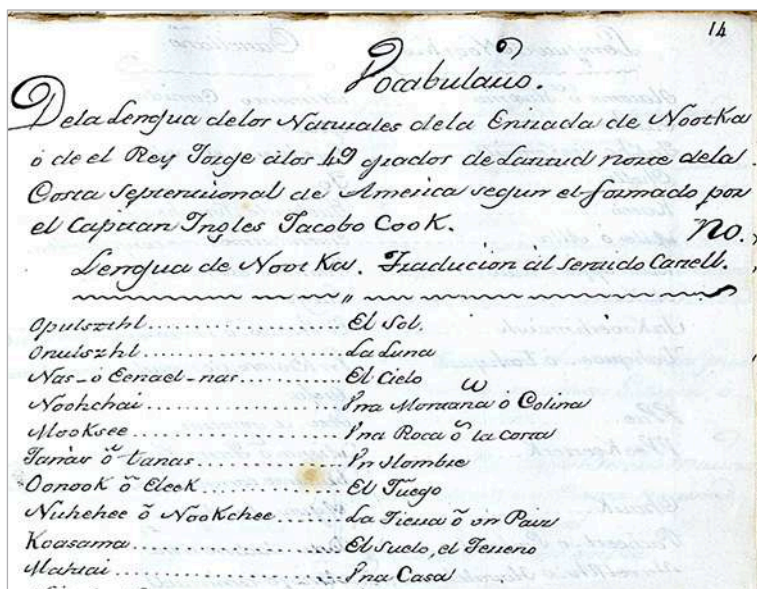 14
Vocabulario.
De la Lengua de los Naturales de la Entrada de Nootka
ó de el Rey Jorge a los 49 grados de Latitud norte de la
Costa Septentrional de America segun el formado por
el Capitan Ingles Jacobo Cook. No.
Lengua de Nootka. Traducion al sentido Castell.
Opulszthl .......... El Sol.
Onulszhl .......... La Luna
Nas-ó Eenael-nas .......... El Cielo
Nookchai .......... Vna Montana ó Colina
Mooksee .......... Vna Roca ó la costa
Tanàs ó tanas .......... Vn Hombre
Oonook ó Eleek .......... El Fuego
Nuhehee ó Nookchee .......... La Tierra ó vn Pais
Koasama .......... El Suelo, el Terreno
Mahtai .......... Vna Casa